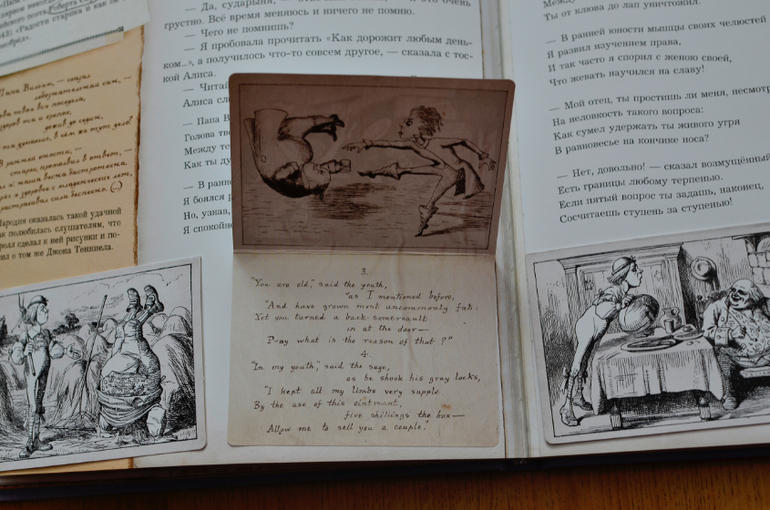 Роберта
43) «Радости старика и как он
приобрёл»
Папа Вильям, — сказал
любопытный сын, —
Пародия оказалась такой удачной
полюбилась слушателям, что
Кэрролл сделал к ней рисунки и по-
том не Джона Тенниела.
— Да, сударыня,
грустно. Всё время меняюсь и ничего не помню.
— Чего не помнишь?
— Я пробовала прочитать «Как дорожит любым день-
ком...», а получилось что-то совсем другое, — сказала с тос-
кой Алиса.
— Читай
Алиса сло
— Папа В
Голова тво
Между те
Как ты ду
— В ранн
Я боялся р
Но, узнав,
Я спокойно
3.
"You are old," said the youth,
"as I mentioned before,
And have grown most uncommonly fat;
Yet you turned a back-somersault
in at the door—
Pray what is the reason of that?"
4.
"In my youth," said the sage,
as he shook his gray locks,
"I kept all my limbs very supple
By the use of this ointment,
five shillings the box—
Allow me to sell you a couple."
Между
Ты от клюва до лап уничтожил.
— В ранней юности мышцы своих челюстей
Я развил изучением права,
И так часто я спорил с женою своей,
Что жевать научился на славу!
— Мой отец, ты простишь ли меня, несмотр
На неловкость такого вопроса:
Как сумел удержать ты живого угря
В равновесье на кончике носа?
— Нет, довольно! — сказал возмущённый
Есть границы любому терпенью.
Если пятый вопрос ты задашь, наконец,
Сосчитаешь ступень за ступенью!